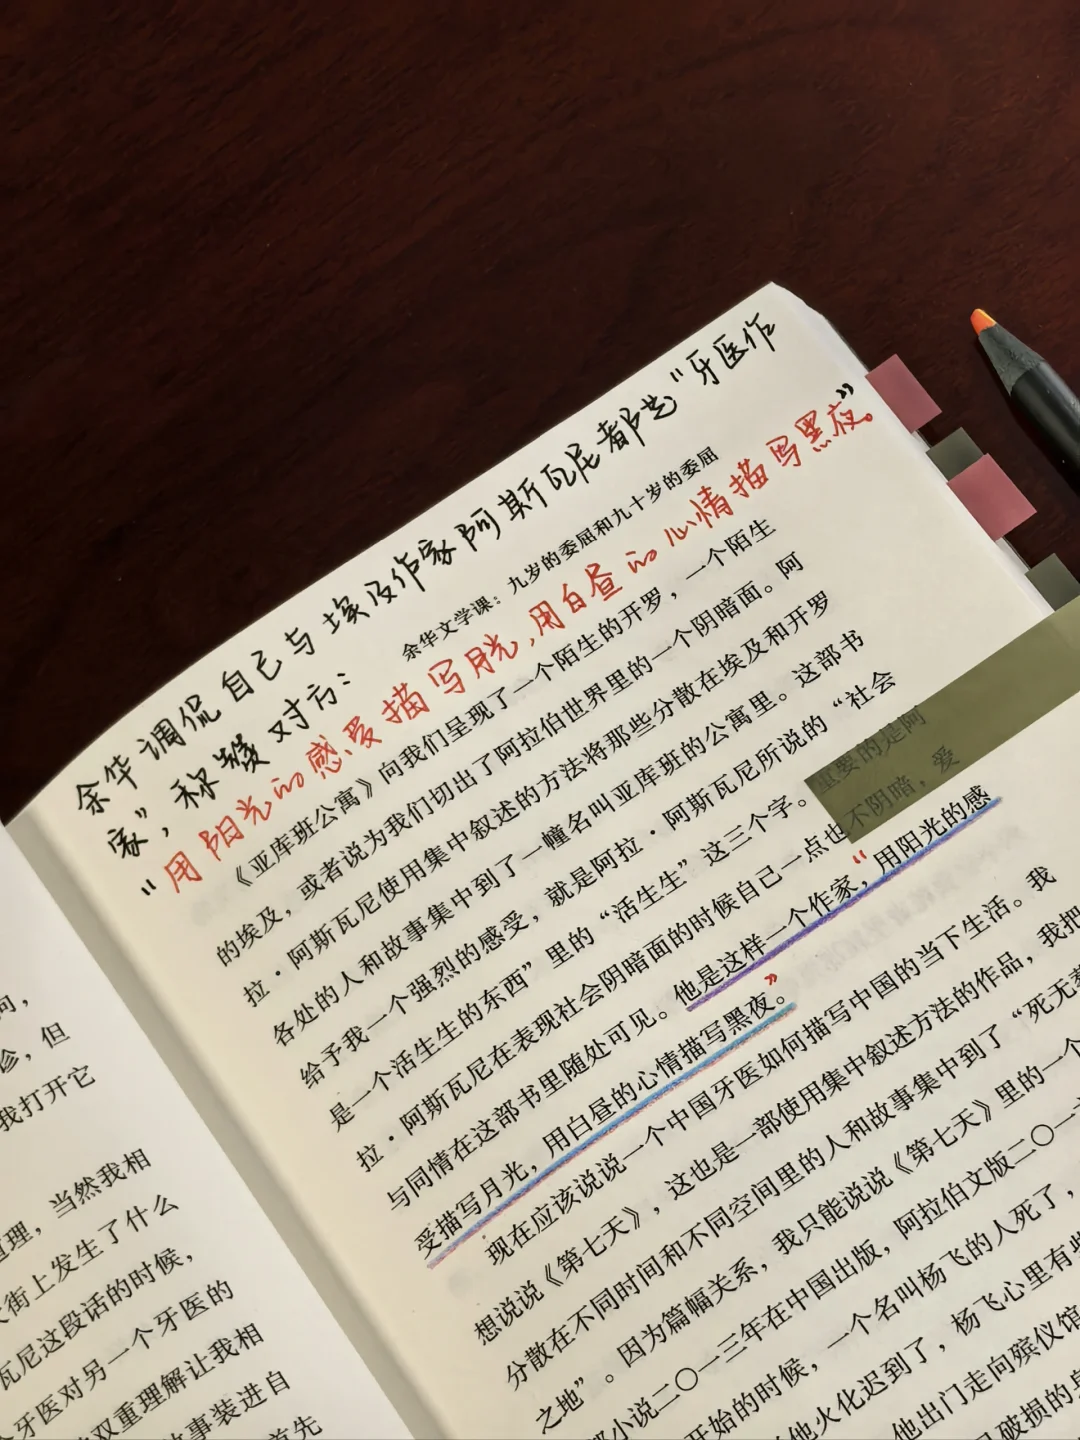 余华调侃自己与埃及作家阿斯瓦尼都是"牙医作
家",称赞对方:
"用阳光的感受描写月光,用白昼的心情描写黑夜。"
余华文学课:九岁的委屈和九十岁的委屈
《亚库班公寓》向我们呈现了一个陌生的开罗,一个陌生
的埃及,或者说为我们切出了阿拉伯世界里的一个阴暗面。阿
拉·阿斯瓦尼使用集中叙述的方法将那些分散在埃及和开罗
各处的人和故事集中到了一幢名叫亚库班的公寓里。这部书
给予我一个强烈的感受,就是阿拉·阿斯瓦尼所说的“社会
是一个活生生的东西”里的“活生生”这三个字。重要的是阿
拉·阿斯瓦尼在表现社会阴暗面的时候自己一点也不阴暗,爱
与同情在这部书里随处可见。他是这样一个作家,“用阳光的感
受描写月光,用白昼的心情描写黑夜。”
现在应该说说一个中国牙医如何描写中国的当下生活。我
想说说《第七天》,这也是一部使用集中叙述方法的作品,我把
分散在不同时间和不同空间里的人和故事集中到了“死无葬
之地”。因为篇幅关系,我只能说说《第七天》里的一个
小说二〇一三年在中国出版,阿拉伯文版二〇一
开始的时候,一个名叫杨飞的人死了,
他火化迟到了,杨飞心里有些
他出门走向殡仪馆
破损的身
问,
诊,但
我打开它
道理,当然我相
大街上发生了什么
瓦尼这段话的时候,
牙医对另一个牙医的
双重理解让我相
故事装进自
首先